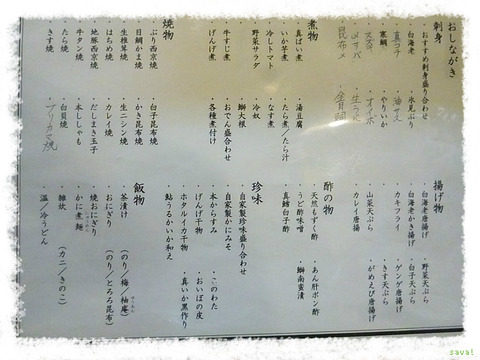 おしながき
刺身
・おすすめ刺身盛り合わせ
・白海老 ・氷見ぶり
・寒鯛 ・やりいか
煮物
・真ばい煮 ・湯豆腐
・いか芋煮 ・たら煮/たら汁
・冷しトマト ・なす煮
・野菜サラダ ・冷奴
・鰤大根
・牛すじ煮 ・おでん盛り合わせ
・げんげ煮 ・各種煮付け
焼物
・ぶり西京焼 ・白子昆布焼
・目鯛かま焼 ・かき昆布焼
・生椎茸焼 ・生ニシン焼
・はちめ焼 ・カレイ焼
・地豚西京焼 ・だしまき玉子
・牛タン焼 ・本ししゃも
・たら焼 ・白貝焼
・きす焼 ブリカマ焼
揚げ物
・白海老唐揚げ ・野菜天ぷら
・白海老かき揚げ ・白子天ぷら
・カキフライ ・ゲンゲ唐揚げ
・山菜天ぷら ・きす天ぷら
・カレイ唐揚 ・がめえび唐揚げ
酢の物
・天然もずく酢 ・あん肝ポン酢
・うど酢味噌 ・鰤南蛮漬
・真鱈白子酢
珍味
・自家製珍味盛り合わせ
・自家製かにみそ
・本からすみ ・このわた
・げんげ干物 ・おいばの皮
・ホタルイカ干物 ・真いか黒作り
・鮎うるかいか和え
飯物
・茶漬け (のり/梅/柚庵)
・おにぎり (のり/とろろ昆布)
・焼おにぎり
・かに煮麺
・雑炊 (カニ/きのこ)
・温/冷うどん
sava!